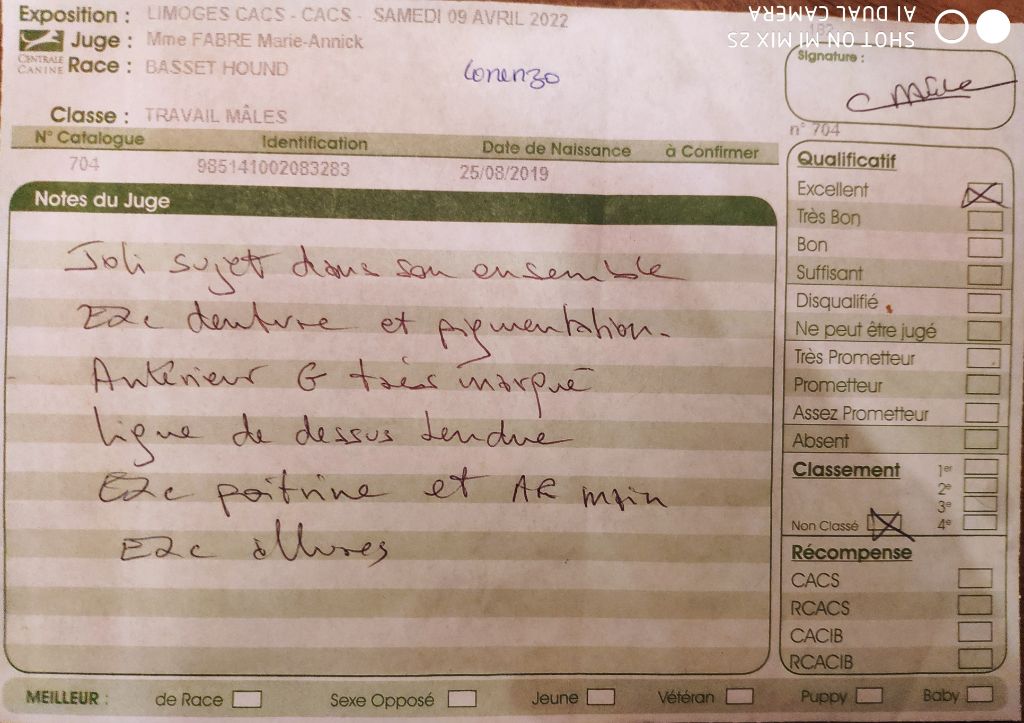 Exposition : LIMOGES CACS - CACS - SAMEDI 09 AVRIL 2022
Juge : Mme FABRE Marie-Annick
CENTRALE CANINE
Race : BASSET HOUND
Lorenzo
Classe : TRAVAIL MÂLES
N° Catalogue Identification Date de Naissance à Confirmer
704 985141002083283 25/08/2019
Notes du Juge
Joli sujet dans son ensemble
Exc denture et pigmentation.
Antérieur G très marqué
Ligne de dessus tendue
Exc poitrine et AR main
Exc allures
SHOT ON MI MIX 2S
AI DUAL CAMERA
Signature :
n° 704
Qualificatif
Excellent
Très Bon
Bon
Suffisant
Disqualifié
Ne peut être jugé
Très Prometteur
Prometteur
Assez Prometteur
Absent
Classement 1er
2e
3e
Non Classé 4e
Récompense
CACS
RCACS
CACIB
RCACIB
MEILLEUR : de Race Sexe Opposé Jeune Vétéran Puppy Baby